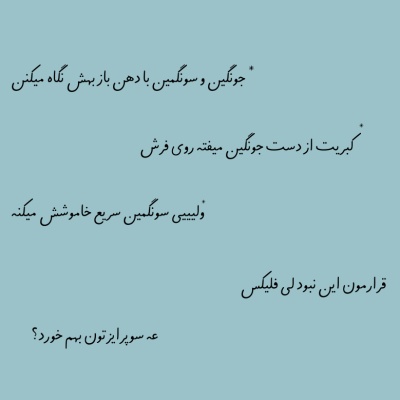 * جونگین و سونگمین با دهن باز بهش نگاه میکنن
* کبریت از دست جونگین میفته روی فرش
*ولیییی سونگمین سریع خاموشش میکنه
قرارمون این نبود لی فلیکس
عه سوپرایزتون بهم خورد؟